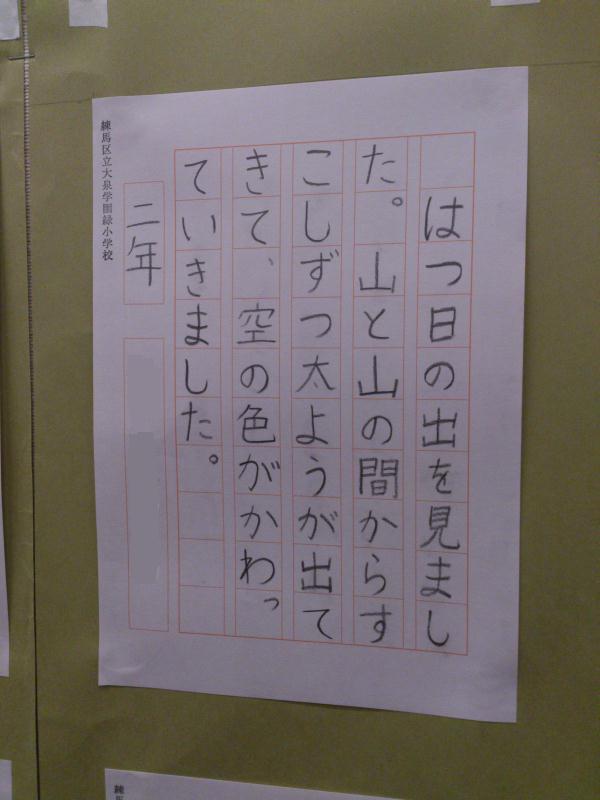 はつ日の出を見まし
た。山と山の間からす
こしずつ太ようが出て
きて、空の色がかわっ
ていきました。
二年
練馬区立大泉学園緑小学校
練馬